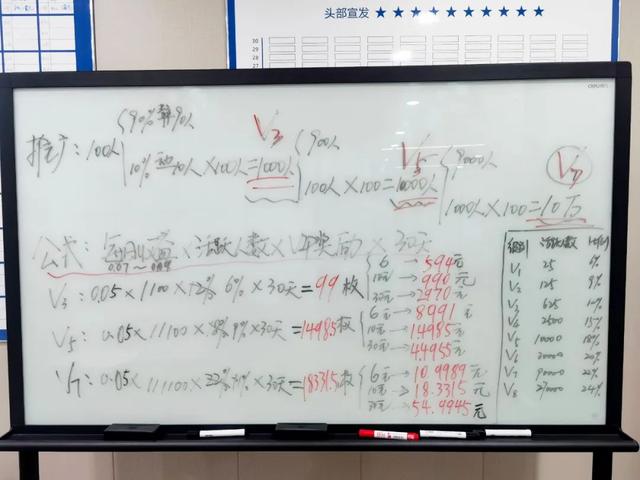 头部宣发 ★★★★★★★★★★
30
29
28
推广: 100人
90%
10% 动 10人 × 100人 = 1000人
V3
900人
100人 × 100 = 10000人
V5
9000人
1000人 × 100 = 10万
V7
公式: 每日收益 × 活跃人数 × V奖励 × 30天
0.07~0.09
V3: 0.05 × 1100 × 6% × 30天 = 99枚
6元 → 594元
10元 → 990元
30元 → 2970元
V5: 0.05 × 11100 × 9% × 30天 = 1498.5枚
6元 → 8991元
10元 → 14985元
30元 → 44955元
V7: 0.05 × 111100 × 22% × 30天 = 18331.5枚
6元 → 10.9989元
10元 → 18.3315元
30元 → 54.9945元
级别 活跃人数
V1 25 6%
V2 125 9%
V3 625 12%
V4 2500 15%
V5 10000 18%
V6 30000 20%
V7 90000 22%
V8 270000 24%